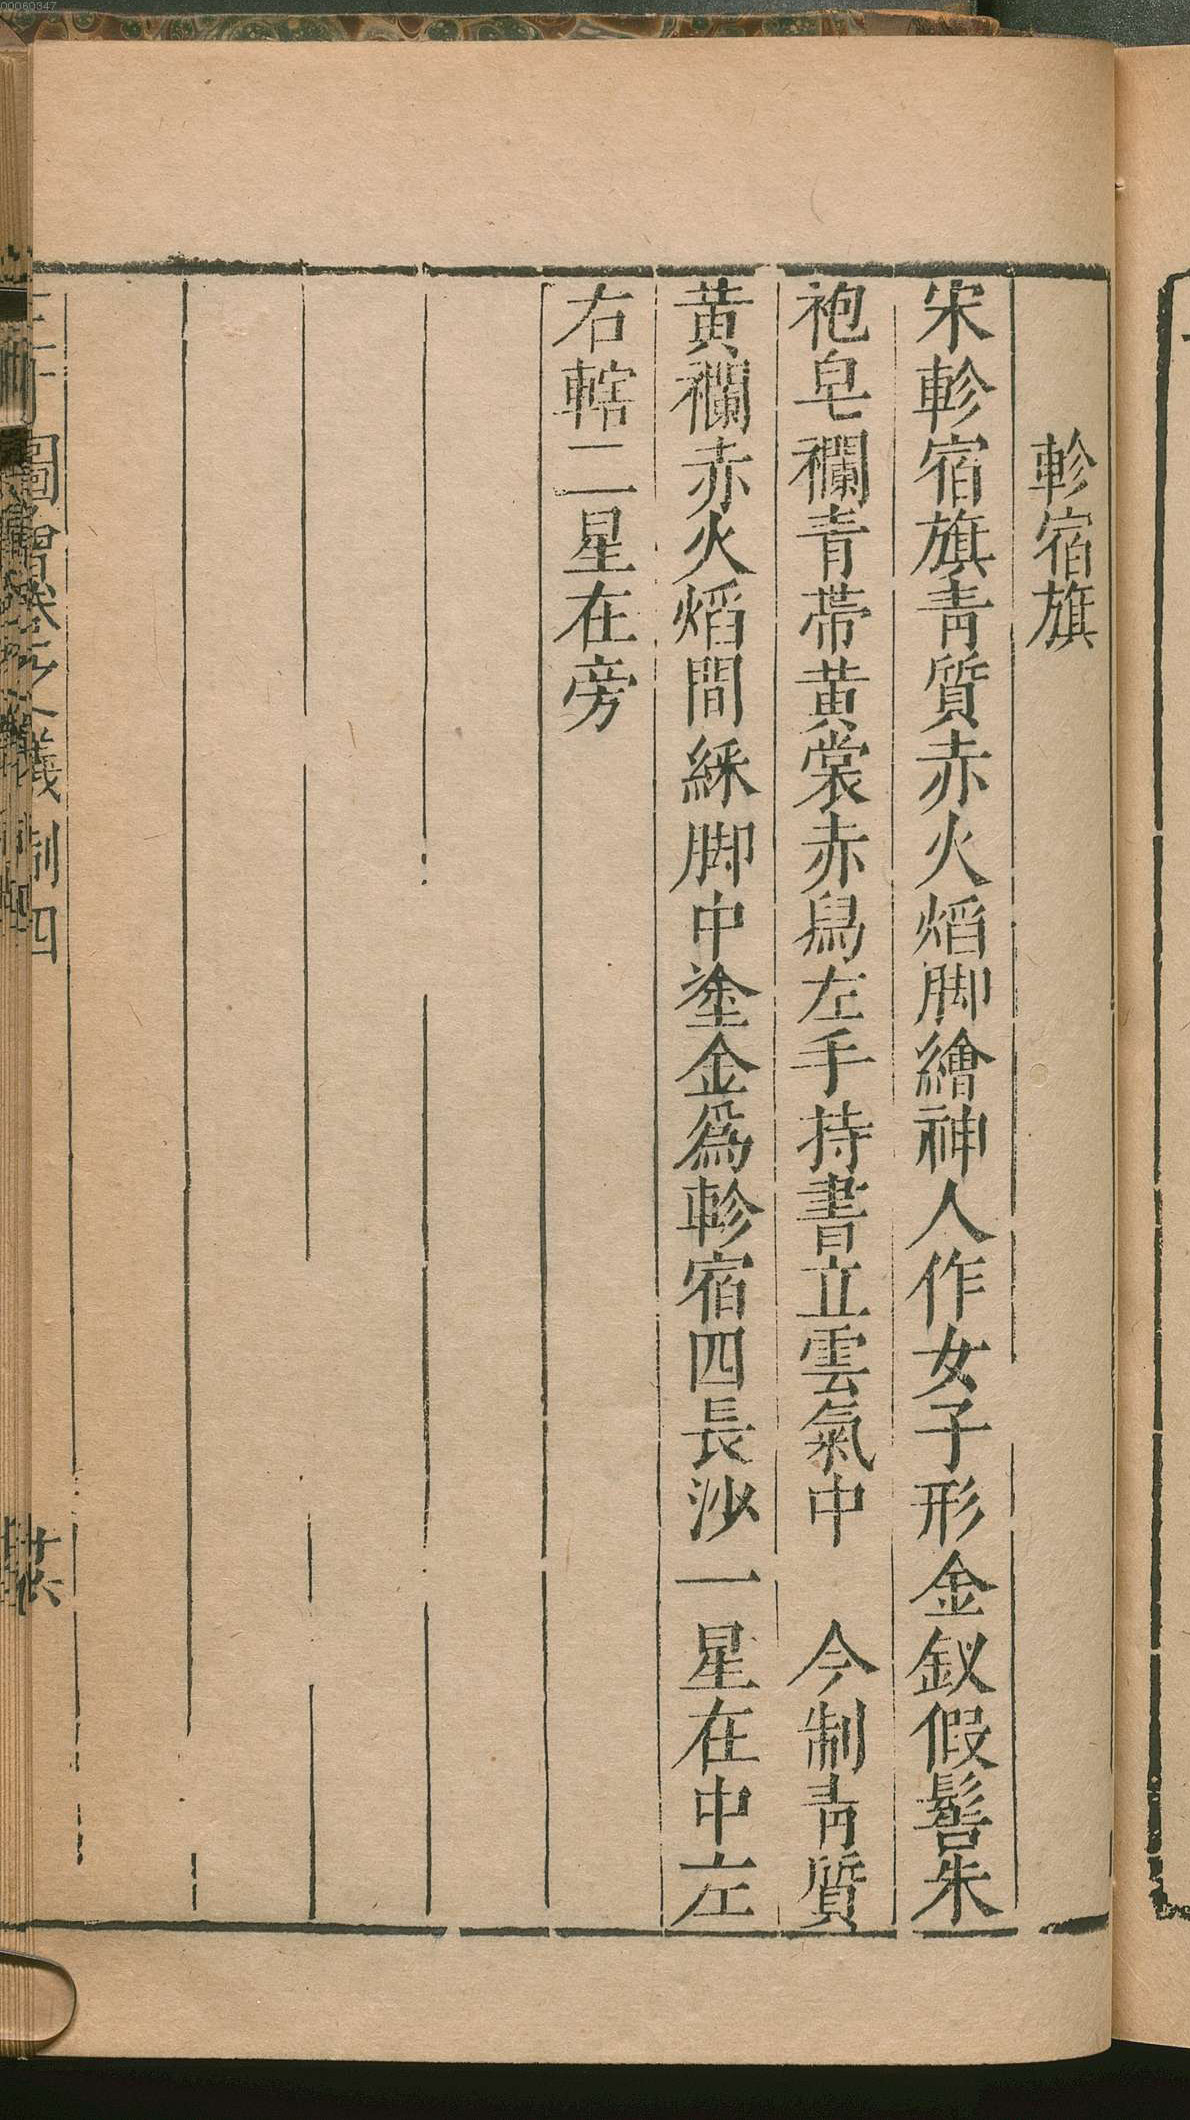 軫宿旗
宋軫宿旗青質赤火焰脚繪神人作女子形金釵假髻朱
袍皂襴青帶黃裳赤舄左手持書立雲氣中　今制青質
黃襴赤火焰間綵脚中塗金爲軫宿四長沙一星在中左
右轄二星在旁
圖會卷之 儀制四
00060347